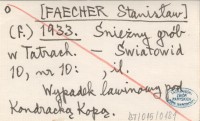 [FAECHER Stanisław]
(F.) 1933. Śnieżny grób
w Tatrach. – Światowid
10, nr 10: , il.
Wypadek lawinowy pod
Kondracką Kopą.